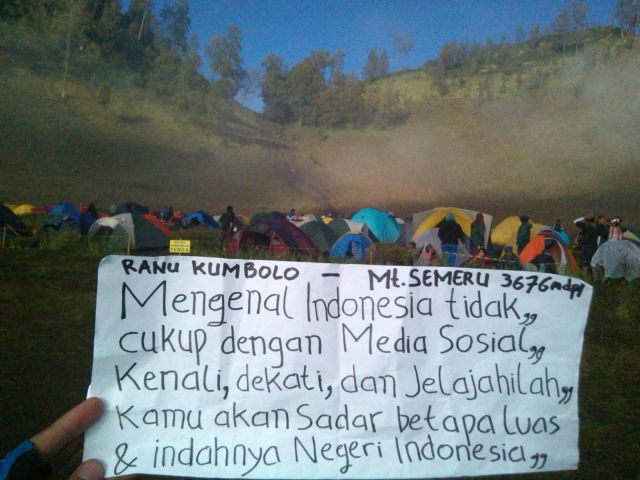 TENDA
RANU KUMBOLO – Mt. SEMERU 3676 mdpl
Mengenal Indonesia tidak,,
cukup dengan Media Sosial,,
Kenali, dekati, dan Jelajahilah,,
Kamu akan Sadar betapa luas
& indahnya Negeri Indonesia,,